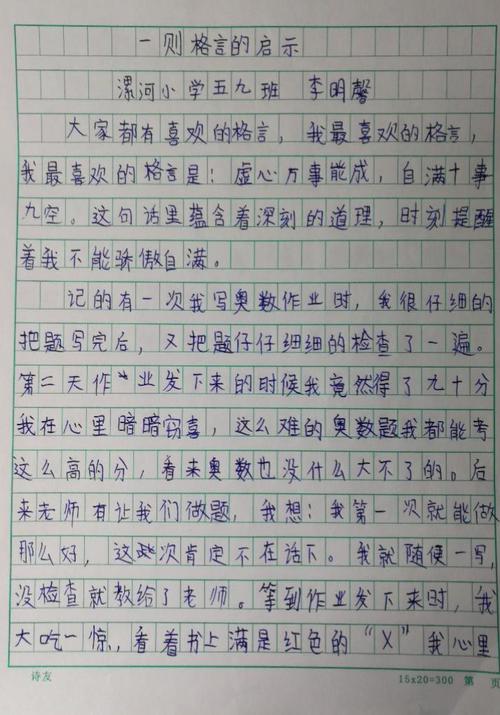 一则格言的启示
漯河小学五九班 李明馨
大家都有喜欢的格言，我最喜欢的格言，
我最喜欢的格言是：虚心万事能成，自满十事
九空。这句话里蕴含着深刻的道理，时刻提醒
着我不能骄傲自满。
记的有一次我写奥数作业时，我很仔细的
把题写完后，又把题仔仔细细的检查了一遍。
第二天作业发下来的时候我竟然得了九十分
我在心里暗暗窃喜，这么难的奥数题我都能考
这么高的分，看来奥数也没什么大不了的。后
来老师有让我们做题，我想：我第一次就能做
那么好，这些次肯定不在话下。我就随便一写，
没检查就教给了老师。等到作业发下来时，我
大吃一惊，看着书上满是红色的“X”我心里
诗友 15x20=300 第 页